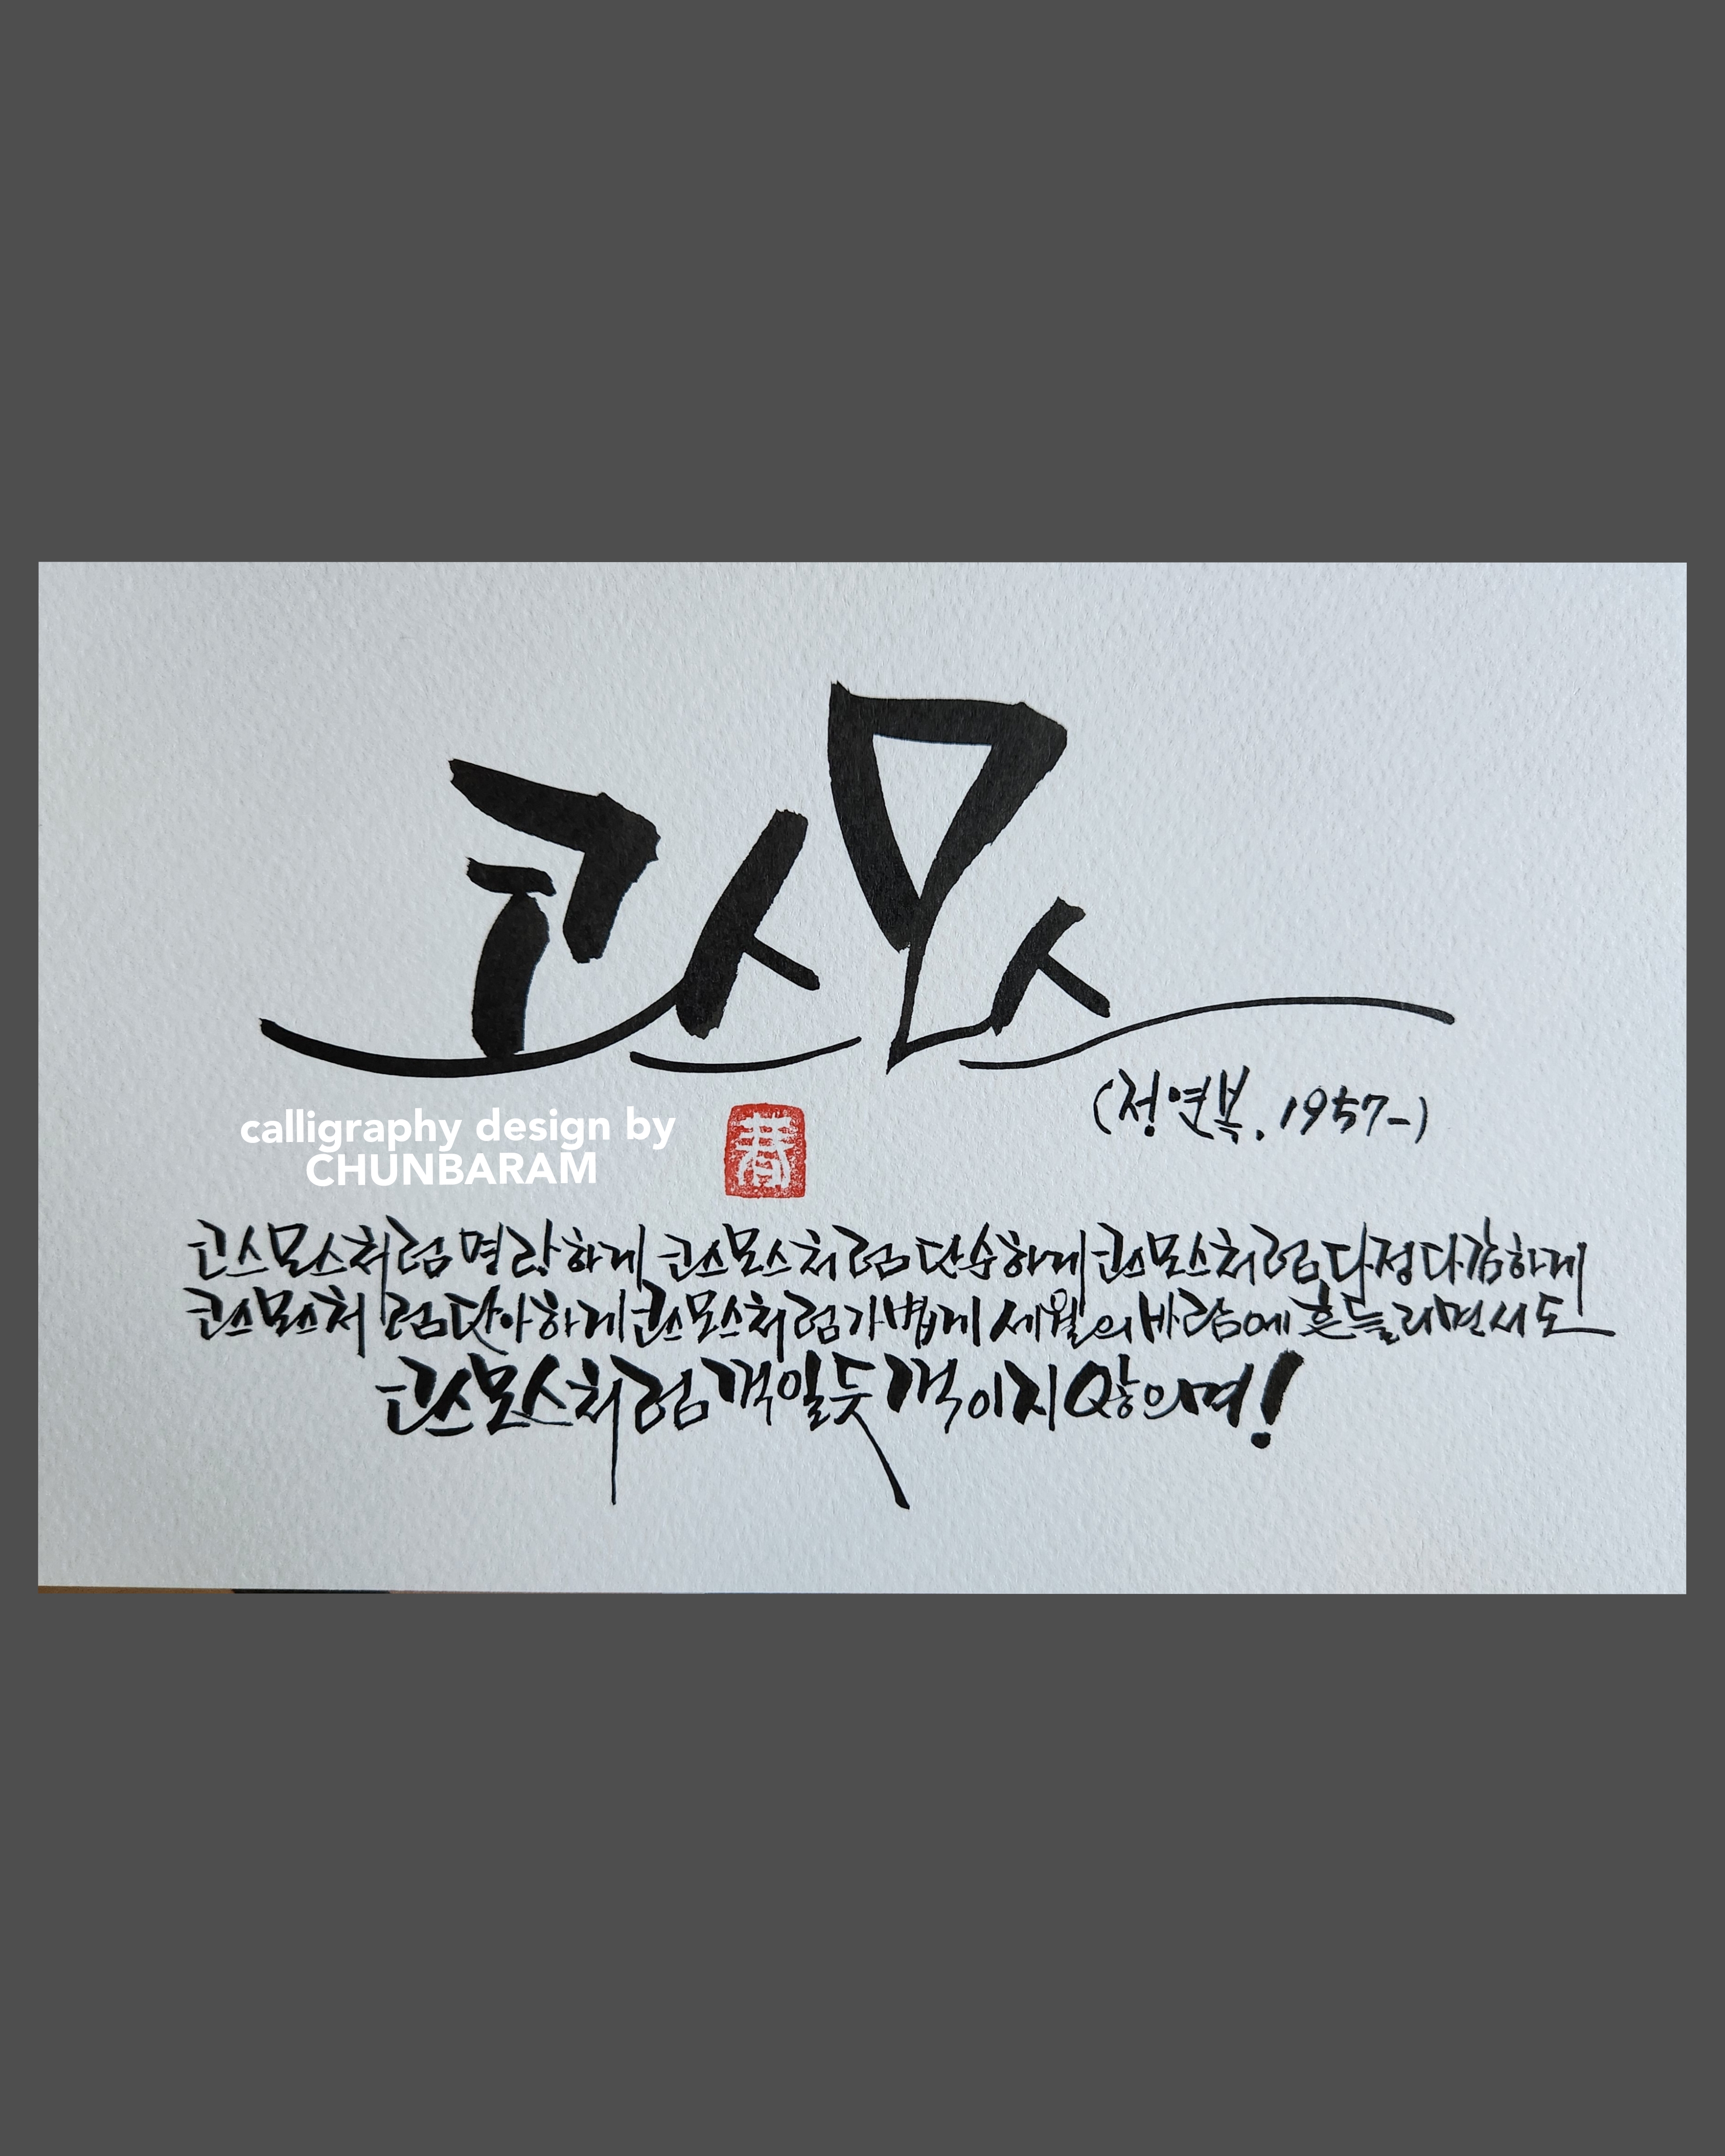 코스모스
(정연복, 1957-)
calligraphy design by
CHUNBARAM
春
코스모스처럼 명랑하게 코스모스처럼 단순하게 코스모스처럼 다정다감하게
코스모스처럼 단아하게 코스모스처럼 가볍게 세월의 바람에 흔들리면서도
코스모스처럼 꺾일듯 꺾이지 않으며!